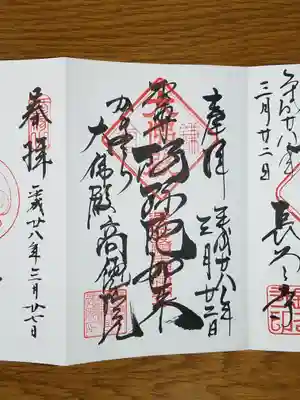 平成廿八年
三月廿二日
長谷寺
奉拝
平成廿八年
三月廿二日
本尊 阿弥陀如来
かまくら
大佛殿 高徳院
奉拝
平成廿八年三月廿